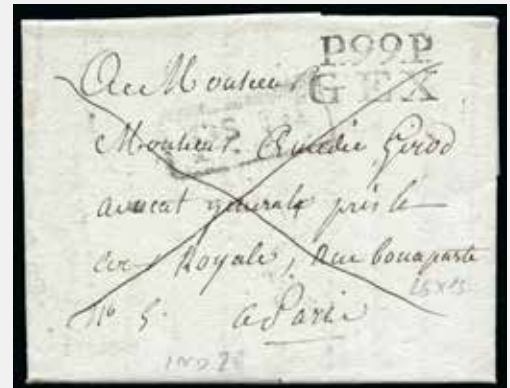 P.99.P.
GEX
A Monsieur
Monsieur Amédée Girod
avocat général près la
cour Royale, Rue bonaparte
N° 5. a Paris
25 x 15
IND 2